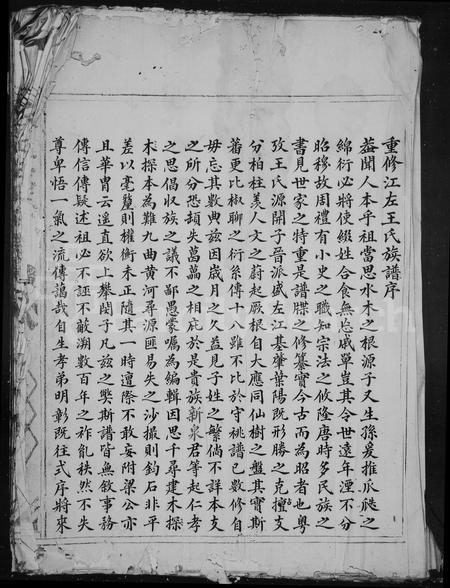 重修江左王氏族譜序
蓋聞人本乎祖當思水木之根源子又生孫爰推瓜瓞之
綿衍必將使綴姓合食無忘戚單豈其令世遠年湮不分
昭穆故周禮有小史之職知宗法之攸隆唐時多民族之
書見世家之特重是譜牒之修纂實今古而為昭者也粵
攷王氏源開子晉派盛左江基肇葉陽既形勝之克擅支
分柏柱羨人文之蔚起厥根自大應同仙樹之盤其實斯
蕃更比椒聊之衍系傳十八雖不比於守祧譜已數修自
毋忘其數典茲因歲月之久益見子姓之繁倘不詳本支
之所分恐頓失萬萬之相庇於是貴族新泉君等起仁孝
之思倡收族之議不鄙愚蒙囑為編輯因思千尋建木探
木探本為難九曲黄河尋源匪易失之沙撮則鈞石非平
差以毫釐則權衡未正隨其一時遭際不敢妄附梁公亦
且華冑云遙直欲上攀閎子凡茲之獘斯譜皆無敘事務
傳信傳疑述祖必不誣不諛溯數百年之祚胤秩然不失
尊卑悟一氣之流傳藹哉自生孝弟明彰既往式序將來